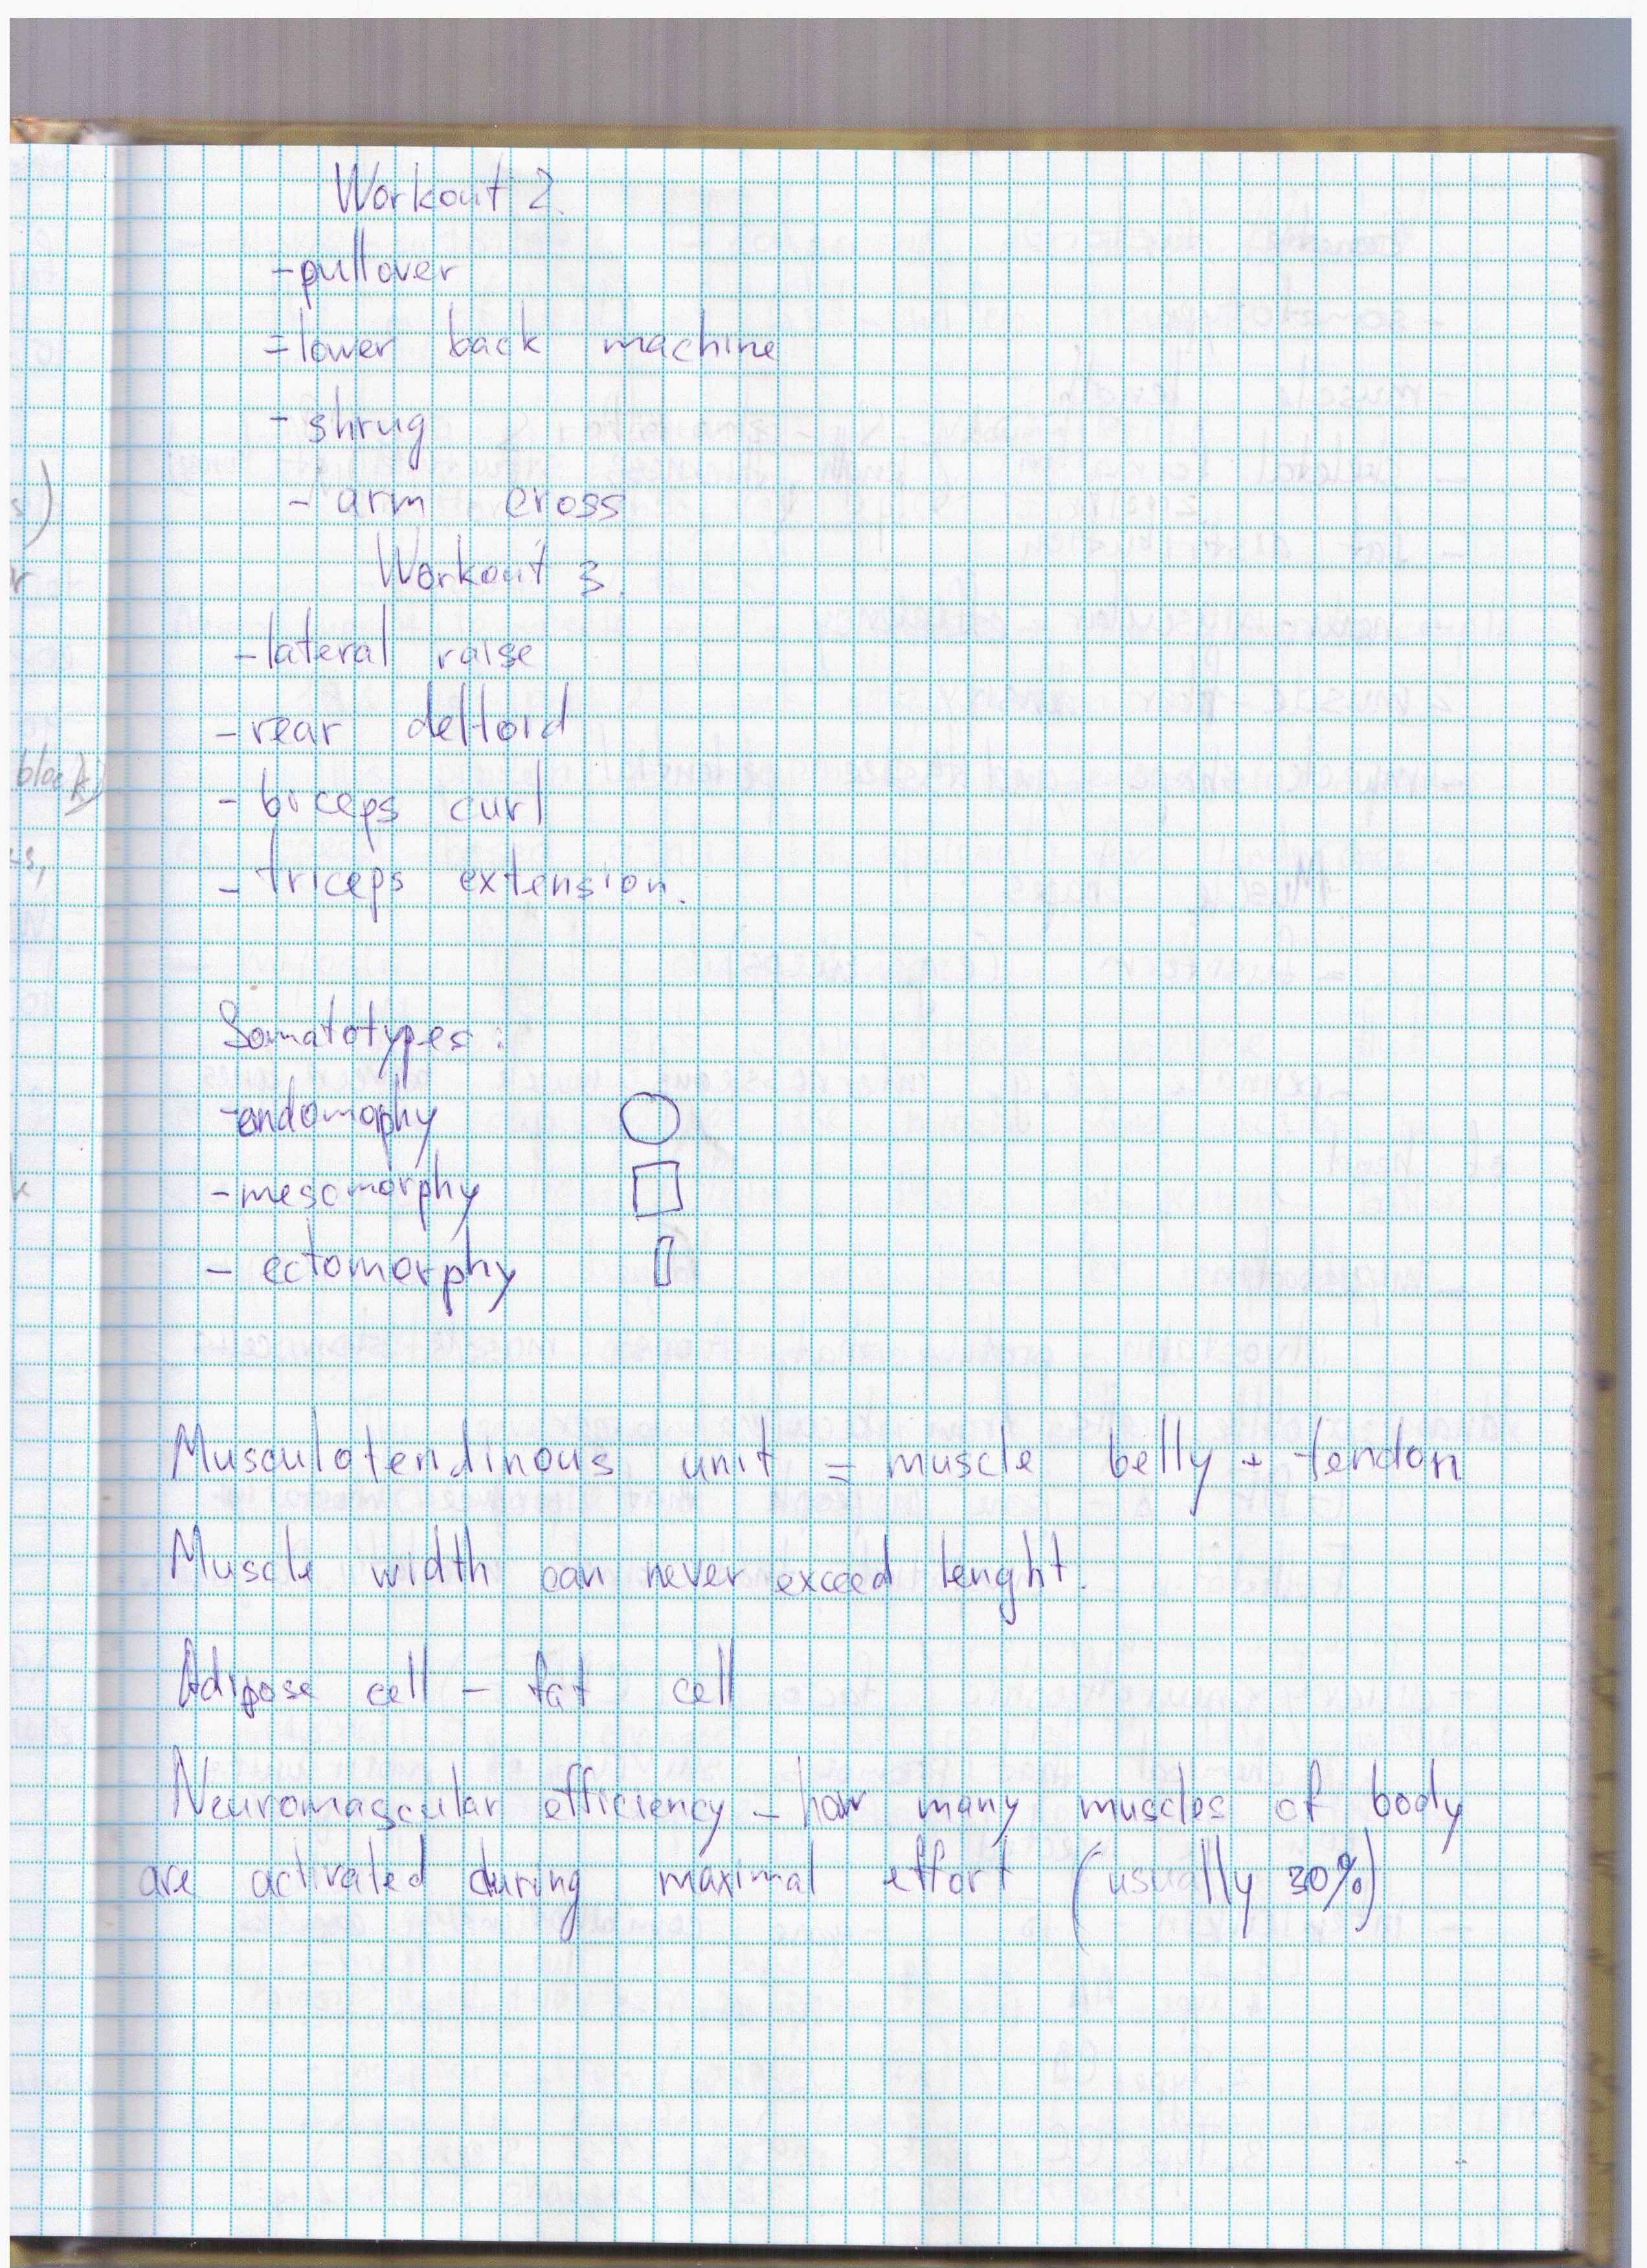 Workout 2.
- pullover
= lower back machine
- shrug
- arm cross
Workout 3.
- lateral raise
- rear deltoid
- biceps curl
- triceps extension.
Somatotypes:
- endomophy
- mesomorphy
- ectomorphy
Musculotendinous unit = muscle belly + tendon
Muscle width can never exceed lenght.
Adipose cell - fat cell
Neuromascular efficiency - how many muscles of body
are activated during maximal effort (usually 30%)
block)